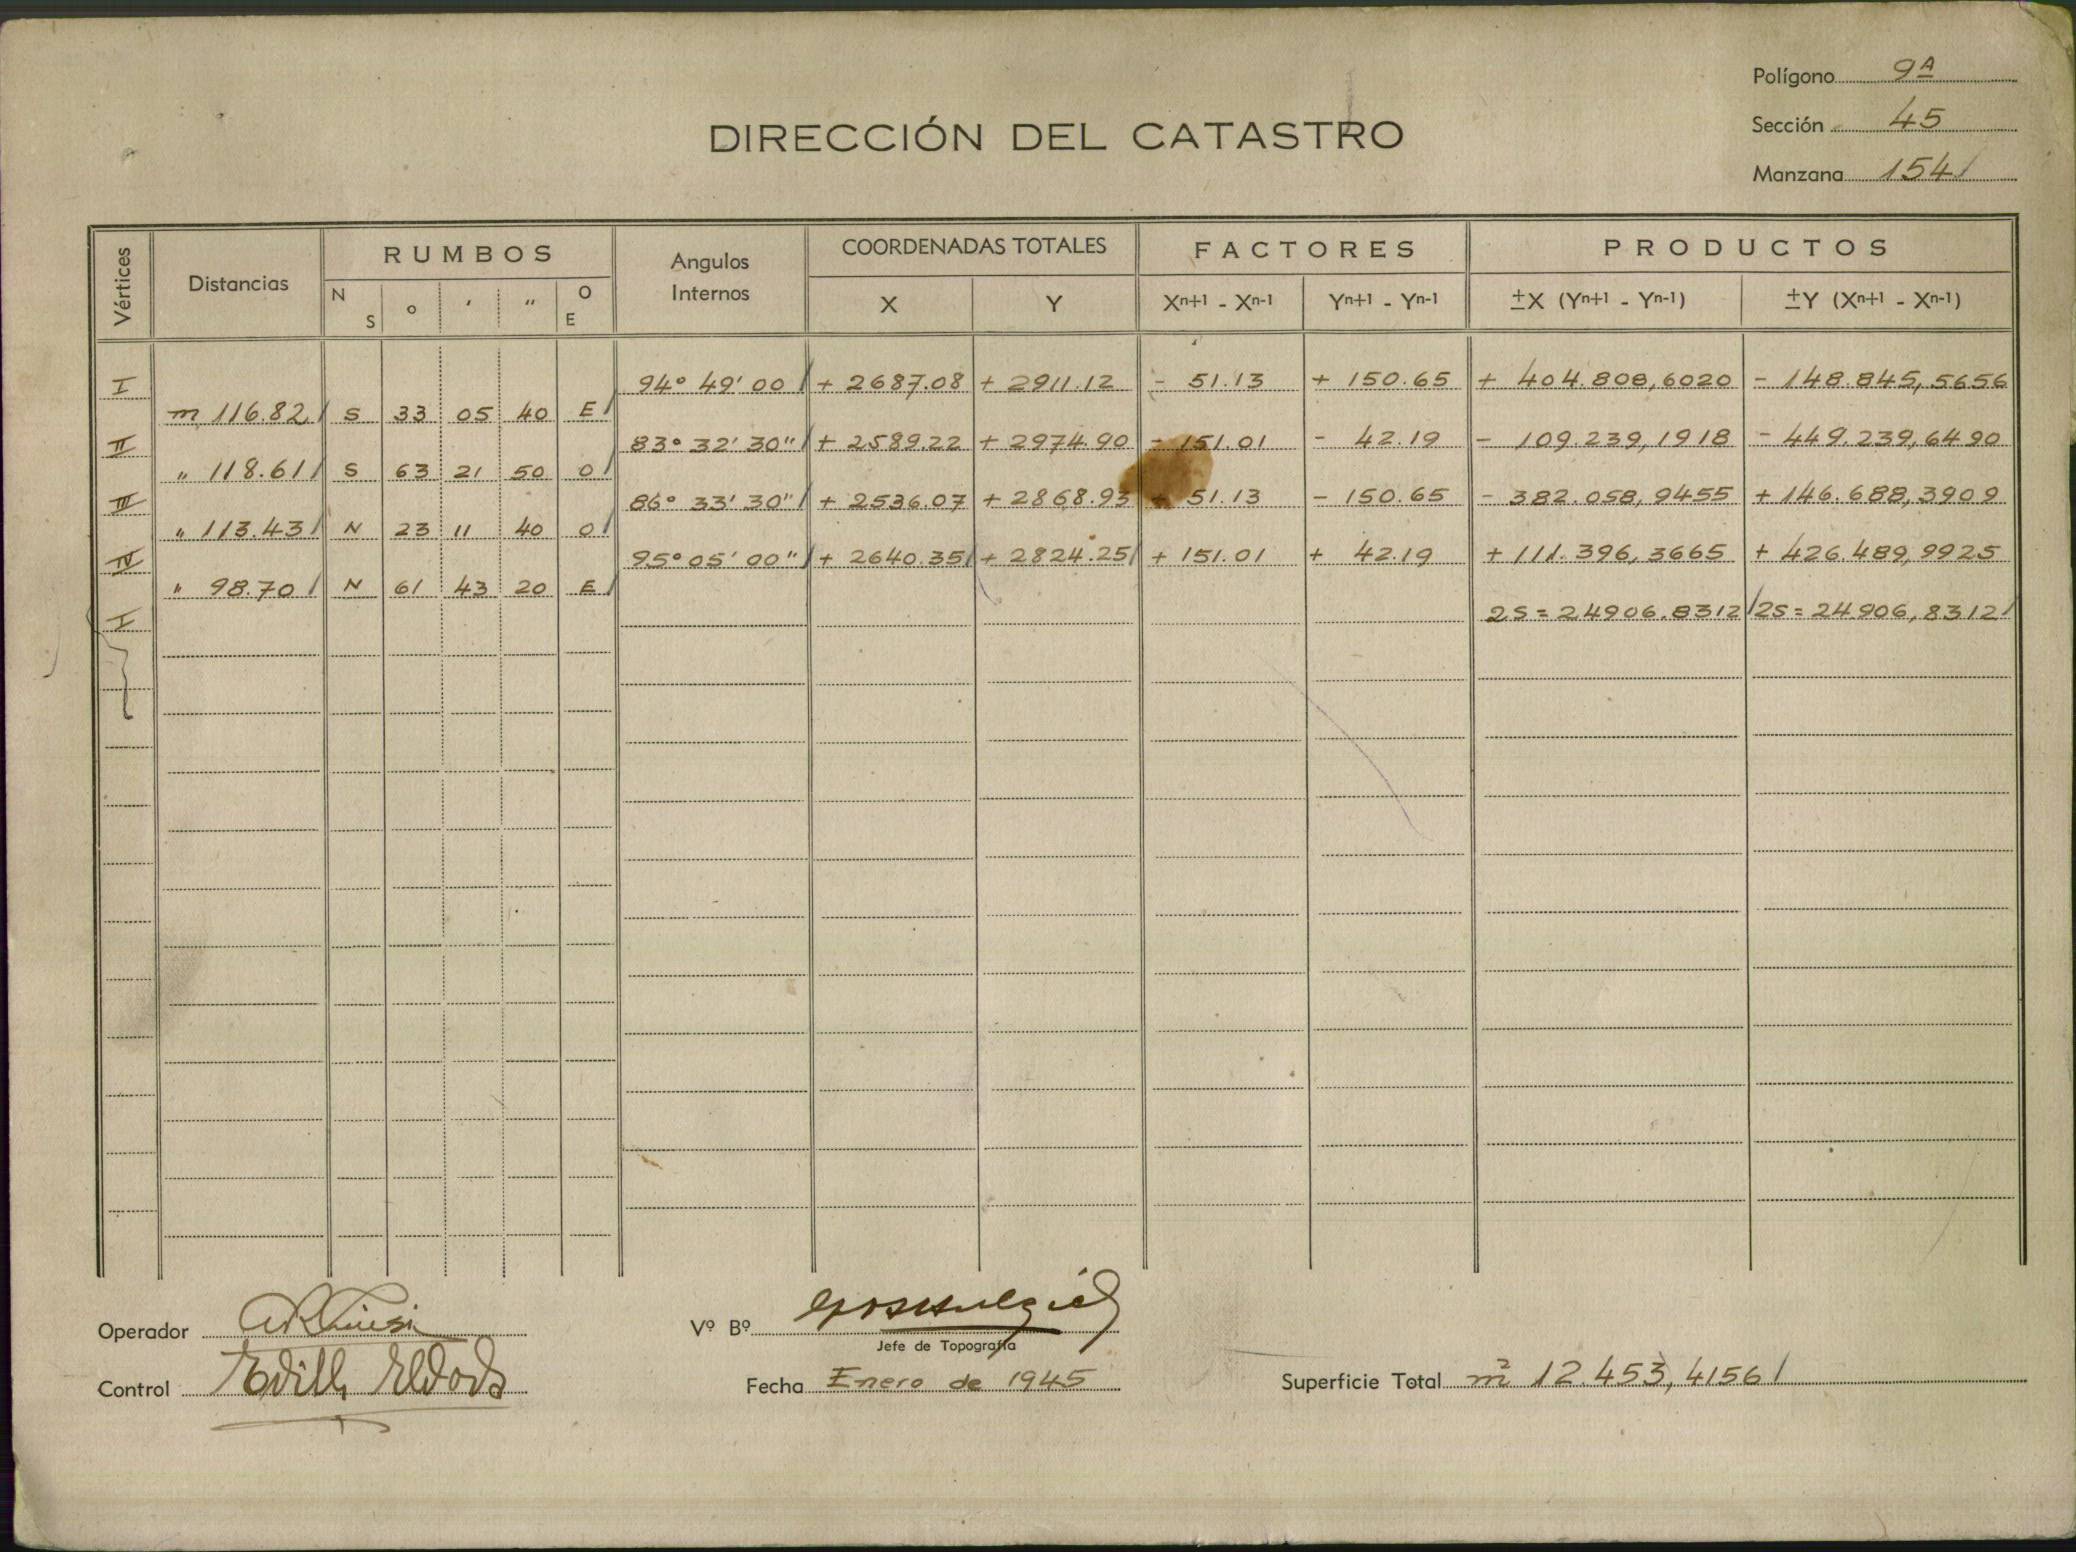 Polígono 9A
Sección 45
Manzana 154
DIRECCIÓN DEL CATASTRO
Vértices Distancias RUMBOS Angulos Internos COORDENADAS TOTALES FACTORES PRODUCTOS
N S ° ′ ″ O E X Y Xn+1 - Xn-1 Yn+1 - Yn-1 ±X (Yn+1 - Yn-1) ±Y (Xn+1 - Xn-1)
I 94° 49' 00 + 2687.08 + 2911.12 - 51.13 + 150.65 + 404.808,6020 - 148.845,5656
m 116.82 S 33 05 40 E
II 83° 32' 30" + 2589.22 + 2974.90 - 151.01 - 42.19 - 109.239,1918 - 449.239,6490
" 118.61 S 63 21 50 O
III 86° 33' 30" + 2536.07 + 2868.93 + 51.13 - 150.65 - 382.058,9455 + 146.688,3909
" 113.43 N 23 11 40 O
IV 95° 05' 00" + 2640.35 + 2824.25 + 151.01 + 42.19 + 111.396,3665 + 426.489,9925
" 98.70 N 61 43 20 E
I 2S = 24906.8312 2S = 24.906,8312
Operador
Vº Bº
Jefe de Topografía
Control Edith
Fecha Enero de 1945
Superficie Total m² 12.453,4156